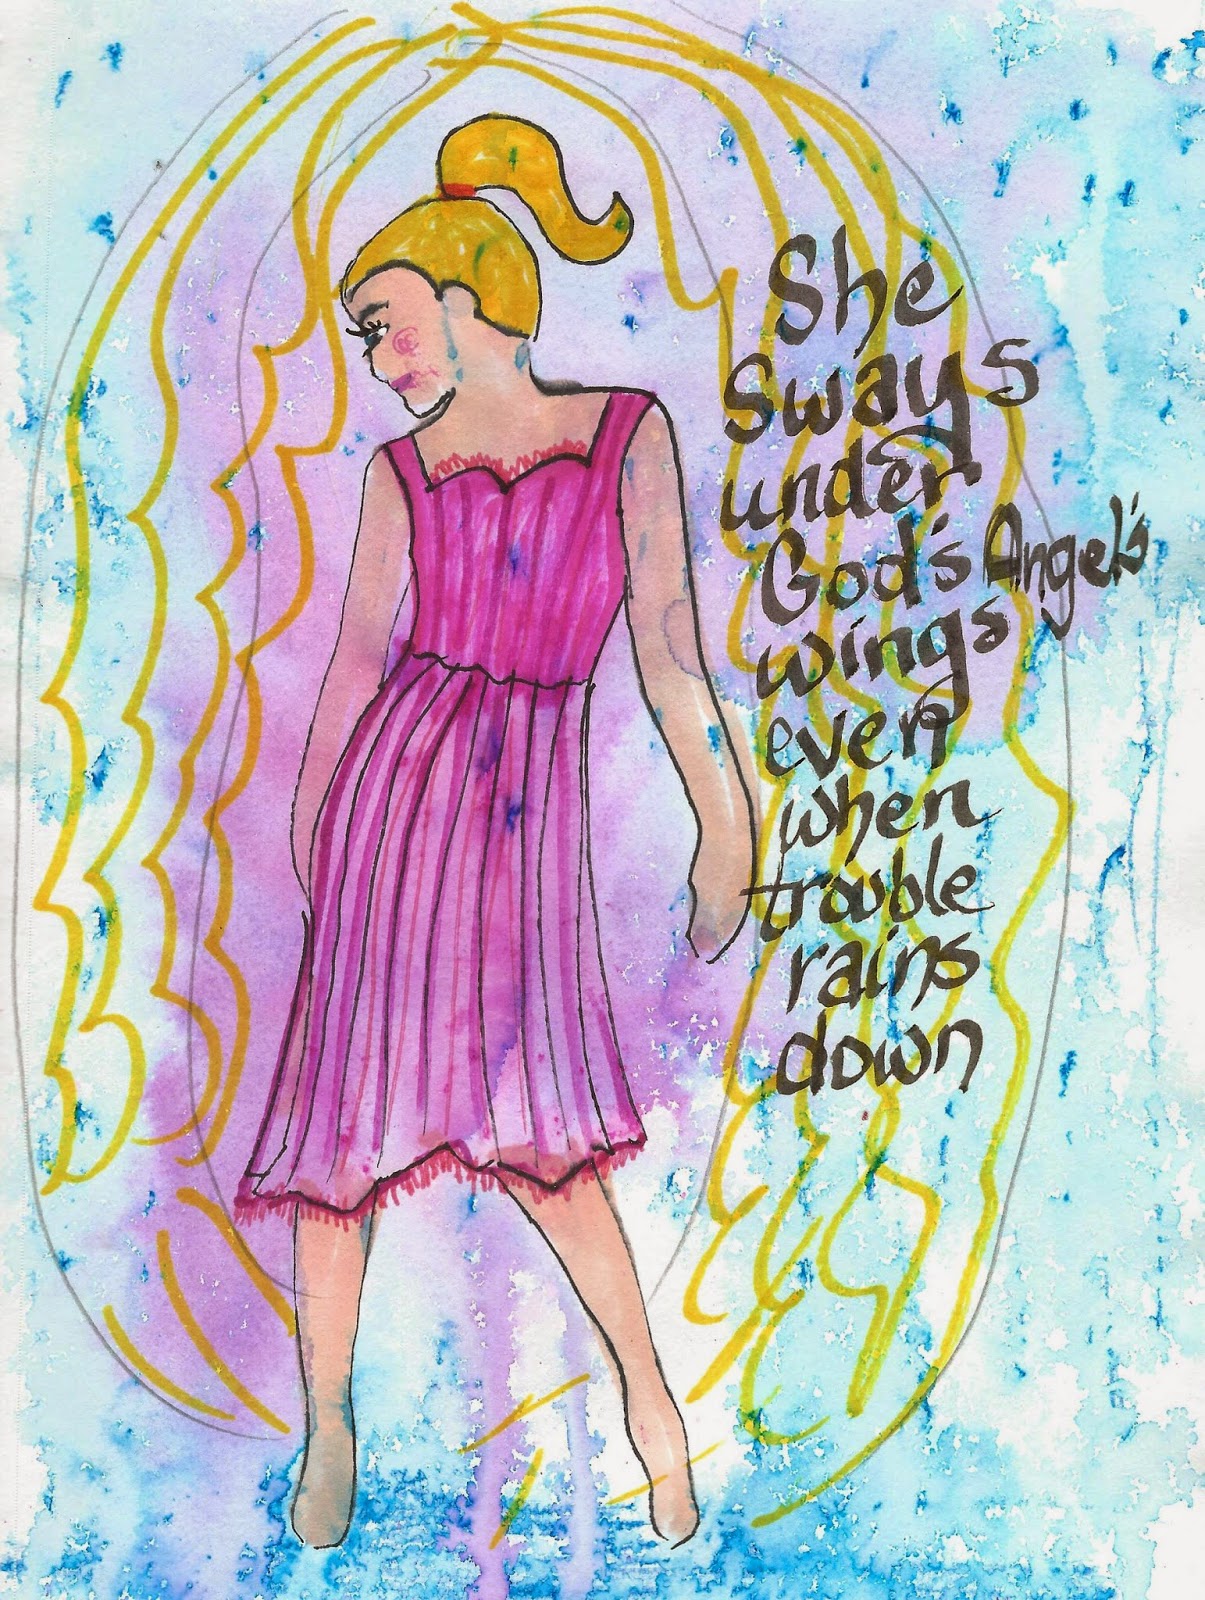 She
Sways
under
God's Angel's
wings
even
when
trouble
rains
down